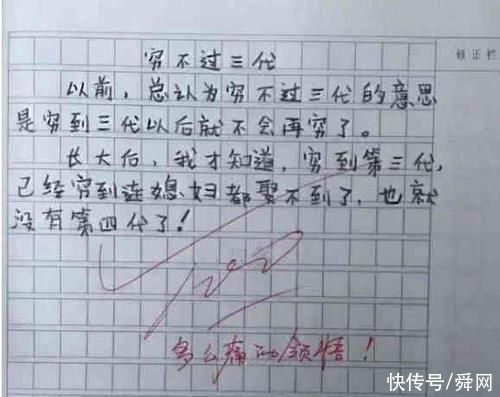 穷不过三代
修正栏
以前，总认为穷不过三代的意思
是穷到三代以后就不会再穷了。
长大后，我才知道，穷到第三代，
已经穷到连媳妇都娶不到了，也就
没有第四代了！
100
多么痛的领悟！
快传号/舜网